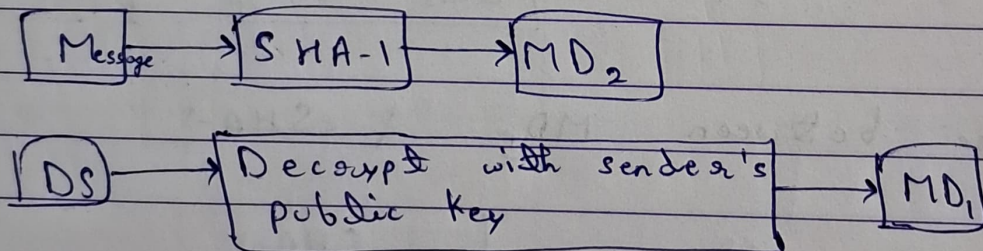 Message → SHA-1 → MD₂
DS → Decrypt with sender's public key → MD₁